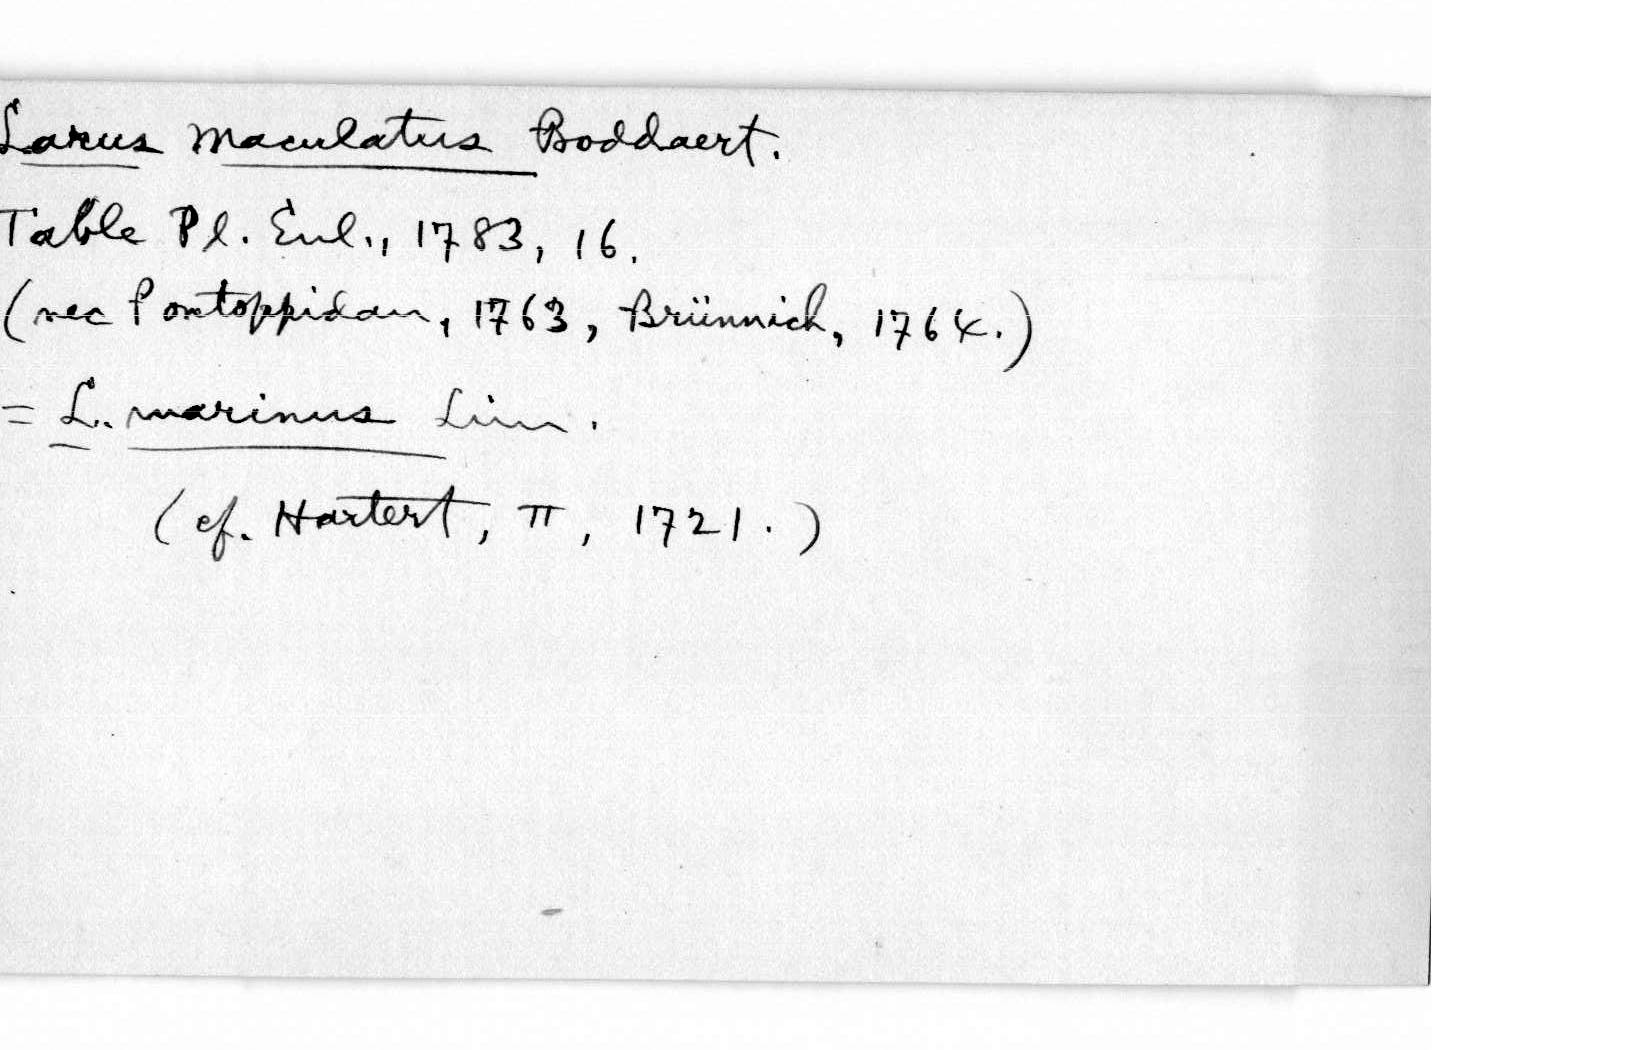 Larus maculatus Boddaert.
Table Pl. Enl., 1783, 16.
(nec Pontoppidan, 1763, Brünnich, 1764.)
= L. marinus Linn.
(cf. Hartert, II, 1721.)